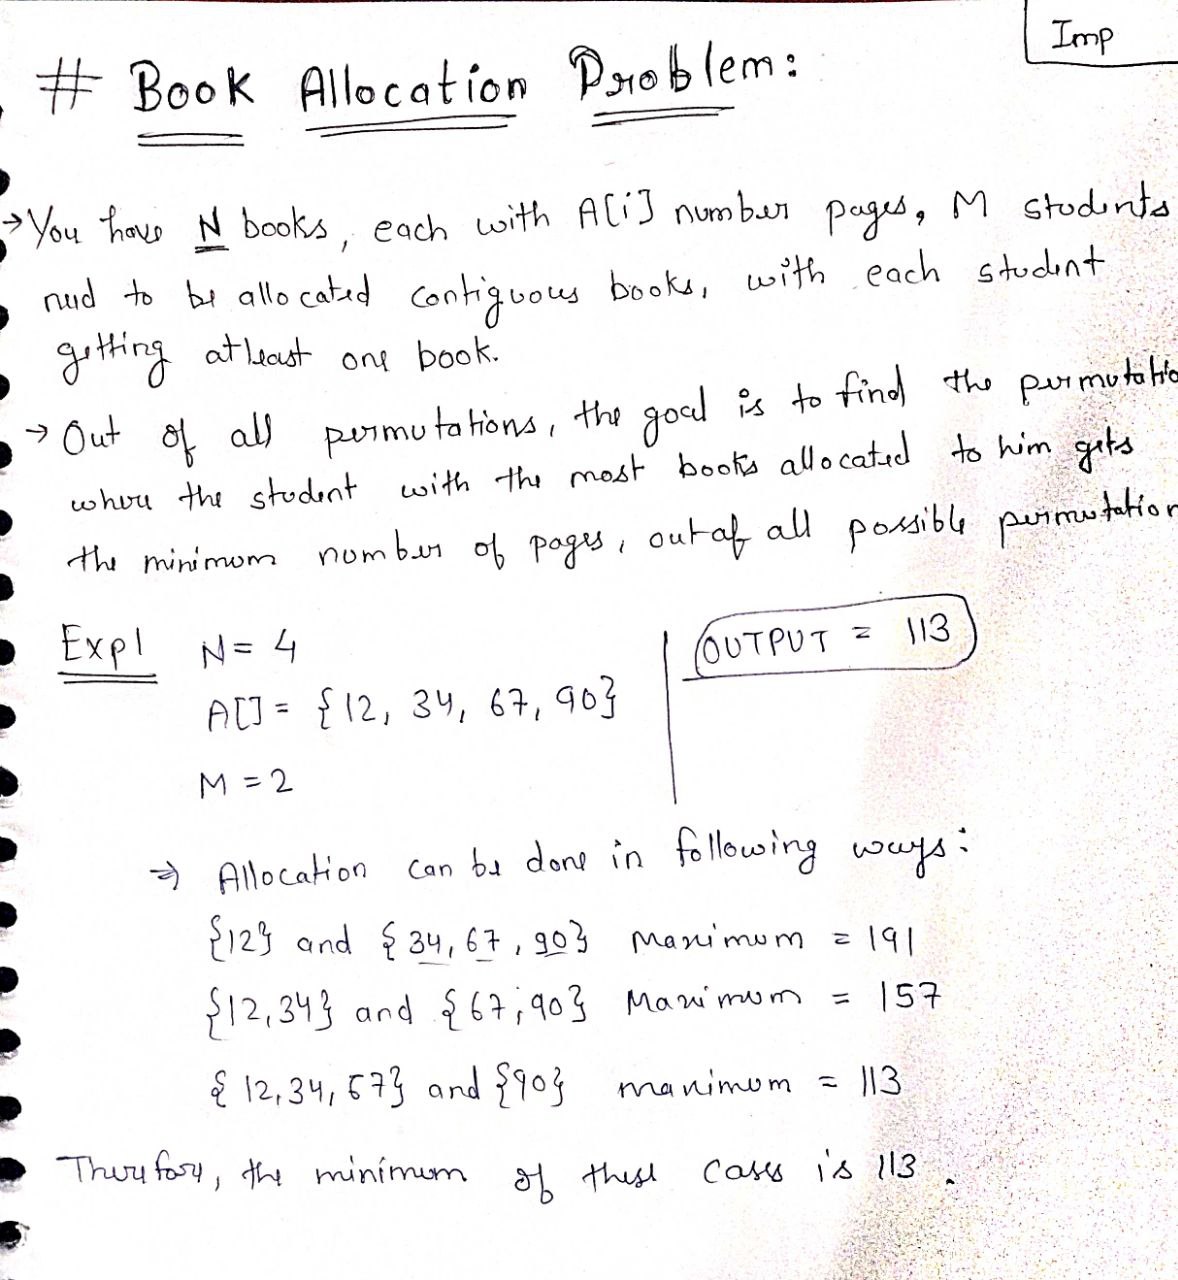 Imp
# Book Allocation Problem:
→ You have N books, each with A[i] number pages, M students
need to be allocated contiguous books, with each student
getting atleast one book.
→ Out of all permutations, the goal is to find the permutatio
where the student with the most books allocated to him gets
the minimum number of pages, out of all possible permutation
Expl N = 4 OUTPUT = 113
A[] = {12, 34, 67, 90}
M = 2
⇒ Allocation can be done in following ways:
{12} and {34, 67, 90} Maximum = 191
{12,34} and {67,90} Maximum = 157
{12,34,67} and {90} maximum = 113
Therefore, the minimum of these cases is 113.